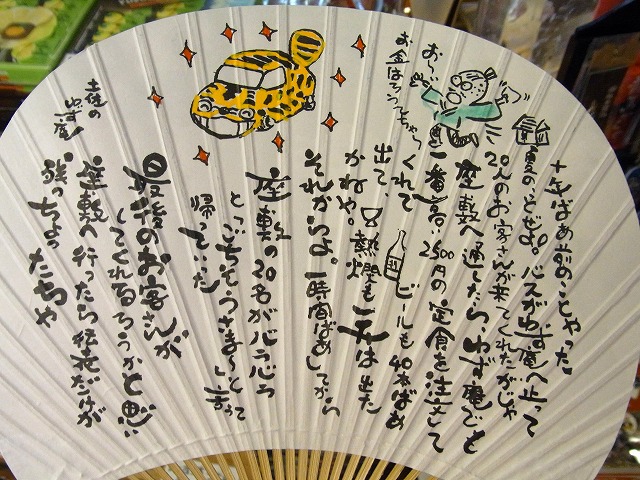 十年ばめ前のことやった
夏のことぜよ。バスがゆず庵へ止って
20人のお客さんが来てくれたがじゃ
座敷へ通したら、ゆず庵でも
一番高い2500円の定食を注文して
くれて ビールも40本ばめ
出て、又熱燗も一升は出た
かねや。
それからよ。一時間ばめしてから
座敷の20名がバラバラ
とごちそうさま〜と言って
帰っていった
最後のお客さんが
してくれるろうかと思い
座敷へ行ったら伝票だけが
残っちょったちや
土佐の
ゆず庵
お〜い
お金はろうてちゃら